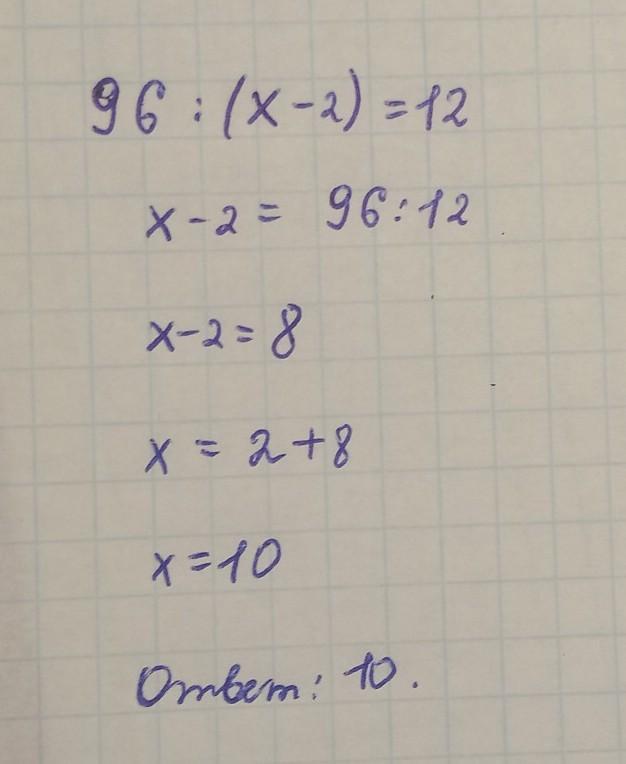 96 : (x - 2) = 12
x - 2 = 96 : 12
x - 2 = 8
x = 2 + 8
x = 10
Ответ: 10.